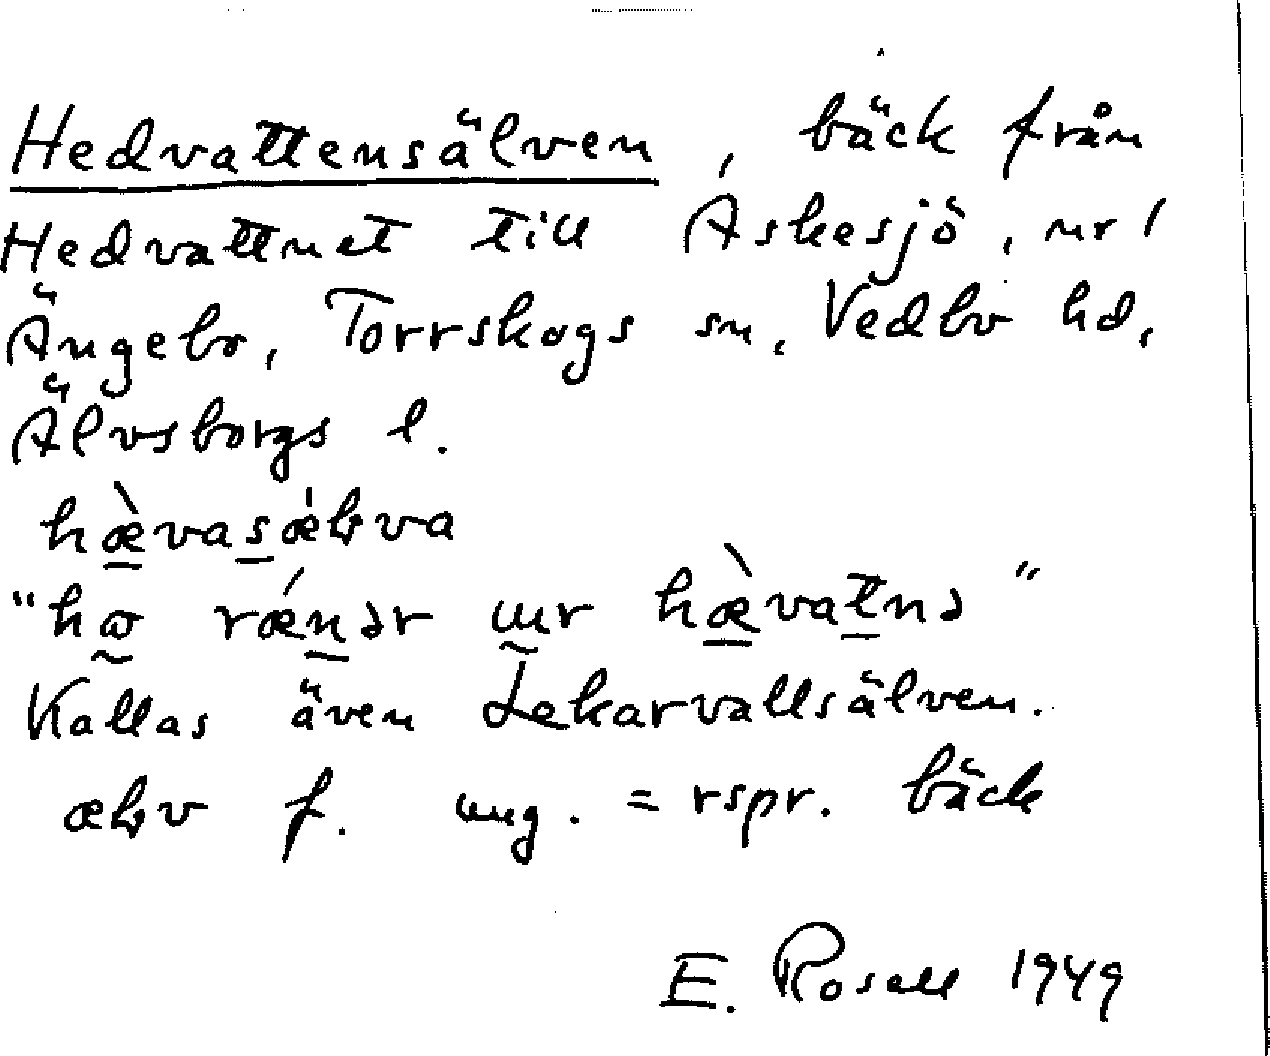 Hedvattensälven, bäck från
Hedvattnet till Åskesjö, nr 1
Ängebo, Torrskogs sn, Vedbo hd,
Älvsborgs l.
hæ̀vasæ̍ƚva
"hω rǽnər ɯr hæ̀vatnə"
Kallas även Lekarvallsälven.
æƚv f. ung. = rspr. bäck
E. Rosell 1949